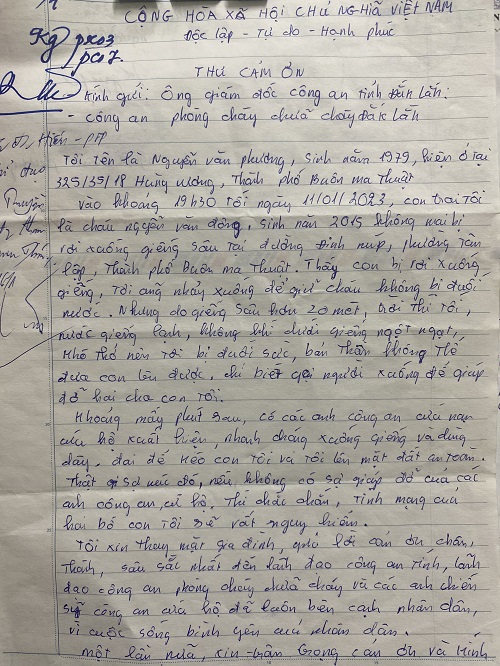 CỘNG HÒA XÃ HỘI CHỦ NGHĨA VIỆT NAM
Độc lập - Tự do - Hạnh phúc
Kg PX03
PC07.
THƯ CẢM ƠN
Kính gửi: Ông giám đốc công an tỉnh Đắk Lắk:
- Công an phòng cháy chữa cháy Đắk Lắk
Tôi tên là Nguyễn văn phương, sinh năm 1979, hiện ở tại
325/35/18 Hùng vương, Thành phố Buôn ma Thuột
Vào khoảng 19h30 tối ngày 11/01/2023, con trai tôi
là cháu nguyễn văn đông, sinh năm 2015 không mai bị
rơi xuống giếng sâu tại đường Đinh núp, phường Tân
lập, Thành phố Buôn ma Thuột. Thấy con bị rơi xuống
giếng, tôi cũng nhảy xuống để giữ cháu không bị đuối
nước. Nhưng do giếng sâu hơn 20 mét, trời thì tối,
nước giếng lạnh, không khí dưới giếng ngột ngạt,
khó thở nên tôi bị đuối sức, bản thân không thể
đưa con lên được, chỉ biết gọi người xuống để giúp
đỡ hai cha con tôi.
Khoảng mấy phút sau, có các anh công an cứu nạn
cứu hộ xuất hiện, nhanh chóng xuống giếng và dùng
dây, đai để kéo con tôi và tôi lên mặt đất an toàn.
Thật sự lúc đó, nếu không có sự giúp đỡ của các
anh công an cứu hộ, thì chắc chắn, tính mạng của
hai bố con tôi sẽ rất nguy hiểm.
Tôi xin thay mặt gia đình, gửi lời cảm ơn chân
thành, sâu sắc nhất đến lãnh đạo công an tỉnh, lãnh
đạo công an phòng cháy chữa cháy và các anh chiến
sỹ công an cứu hộ đã luôn bên cạnh nhân dân,
vì cuộc sống bình yên của nhân dân.
Một lần nữa, xin trân trọng cảm ơn và kính